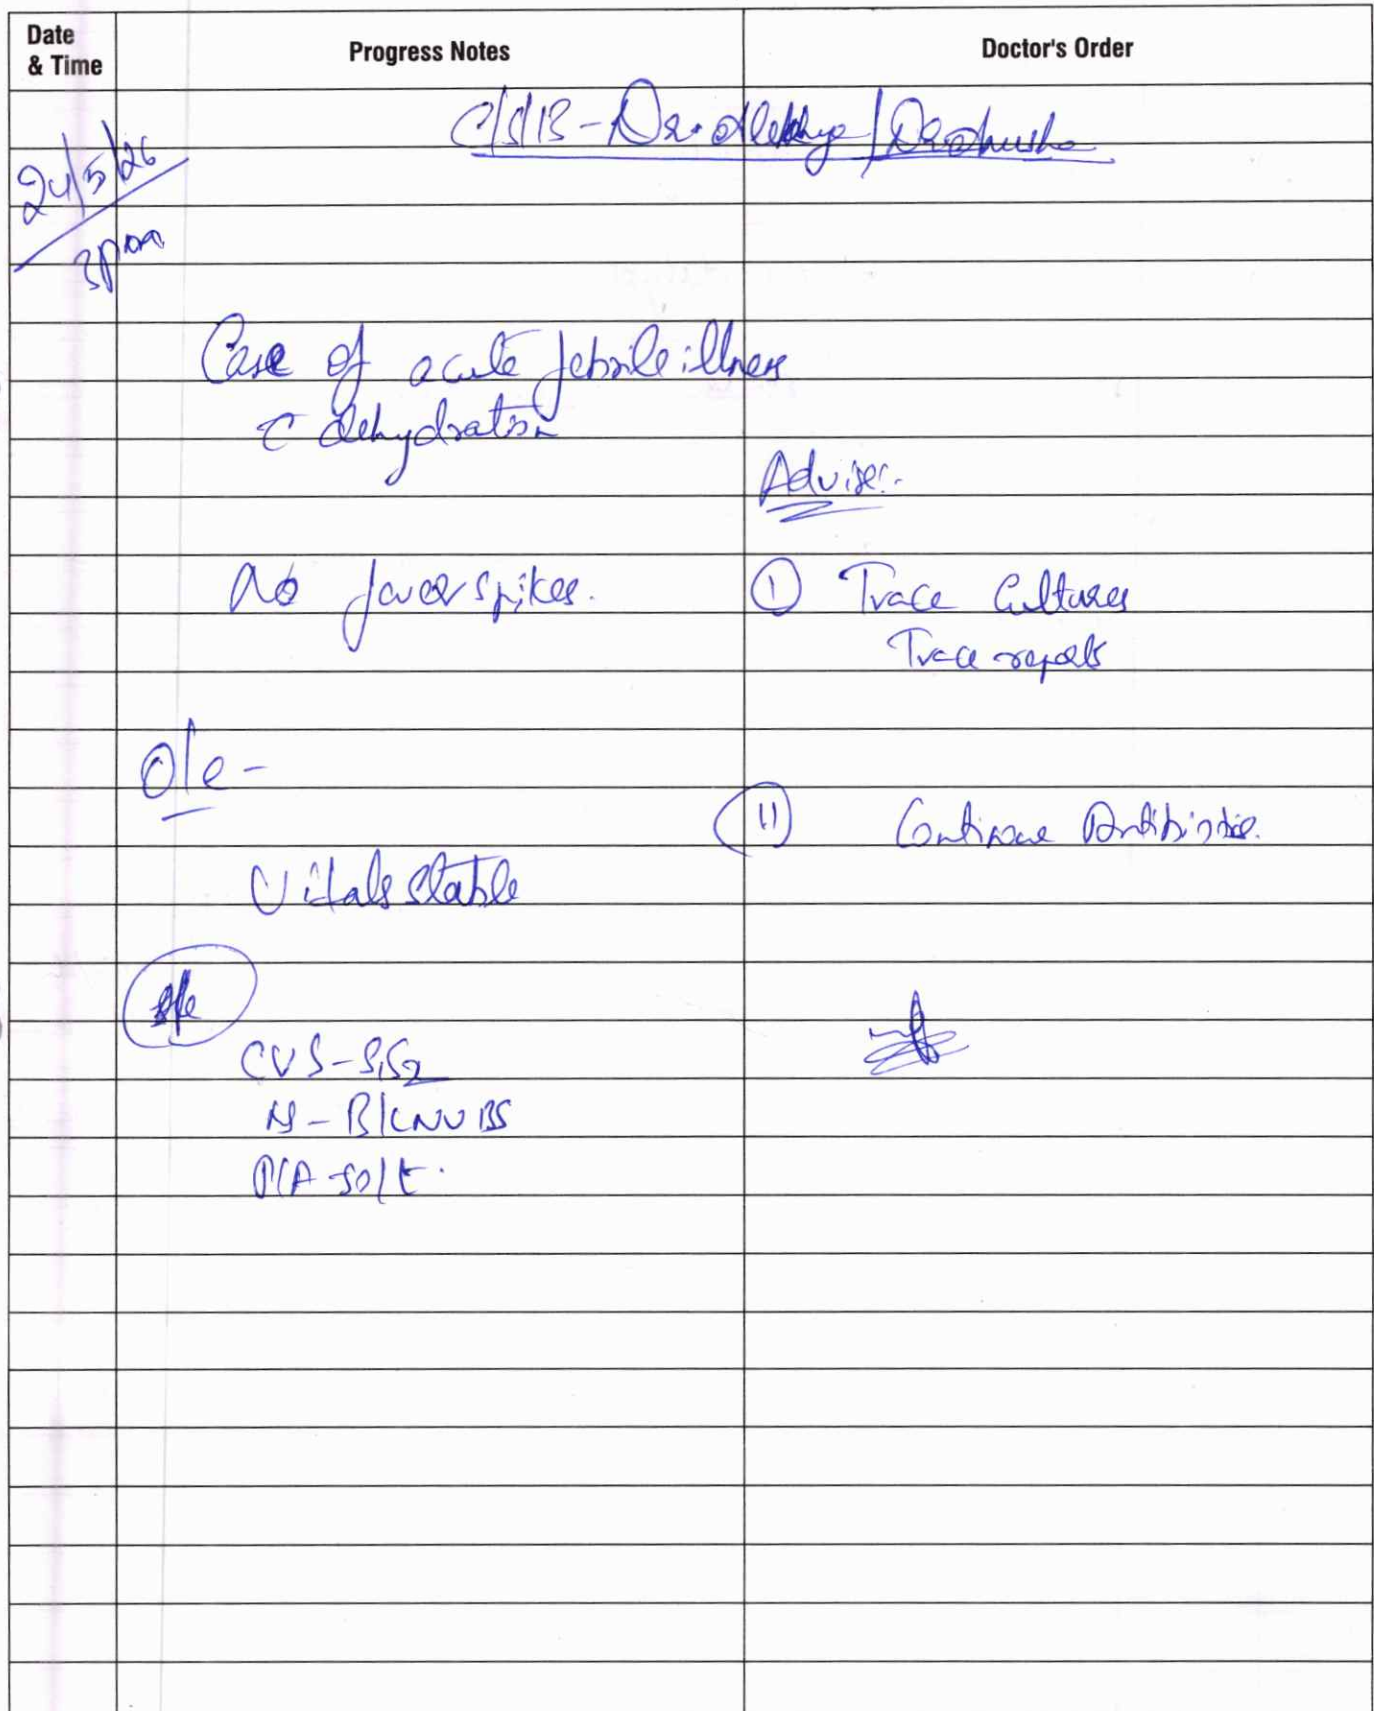 Date & Time
Progress Notes
Doctor's Order
C/S/B - Dr.
24/5/26
3pm
Case of acute febrile illness
c dehydration
Advise:-
No fever spikes.
① Trace Cultures
Trace reports
O/e -
⑪ Continue Antibiotic.
Vitals stable
CVS - S1S2
RS - B/L NVBS
P/A - soft.